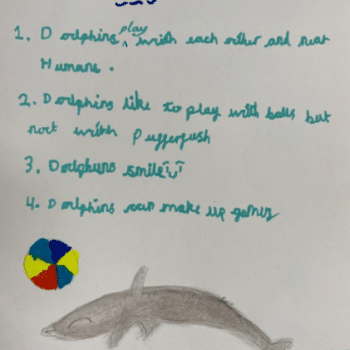 1. Dolphins play with each other and near
Humans.
2. Dolphins like to play with balls but
not with Pufferfish
3. Dolphins smile
4. Dolphins can make up games